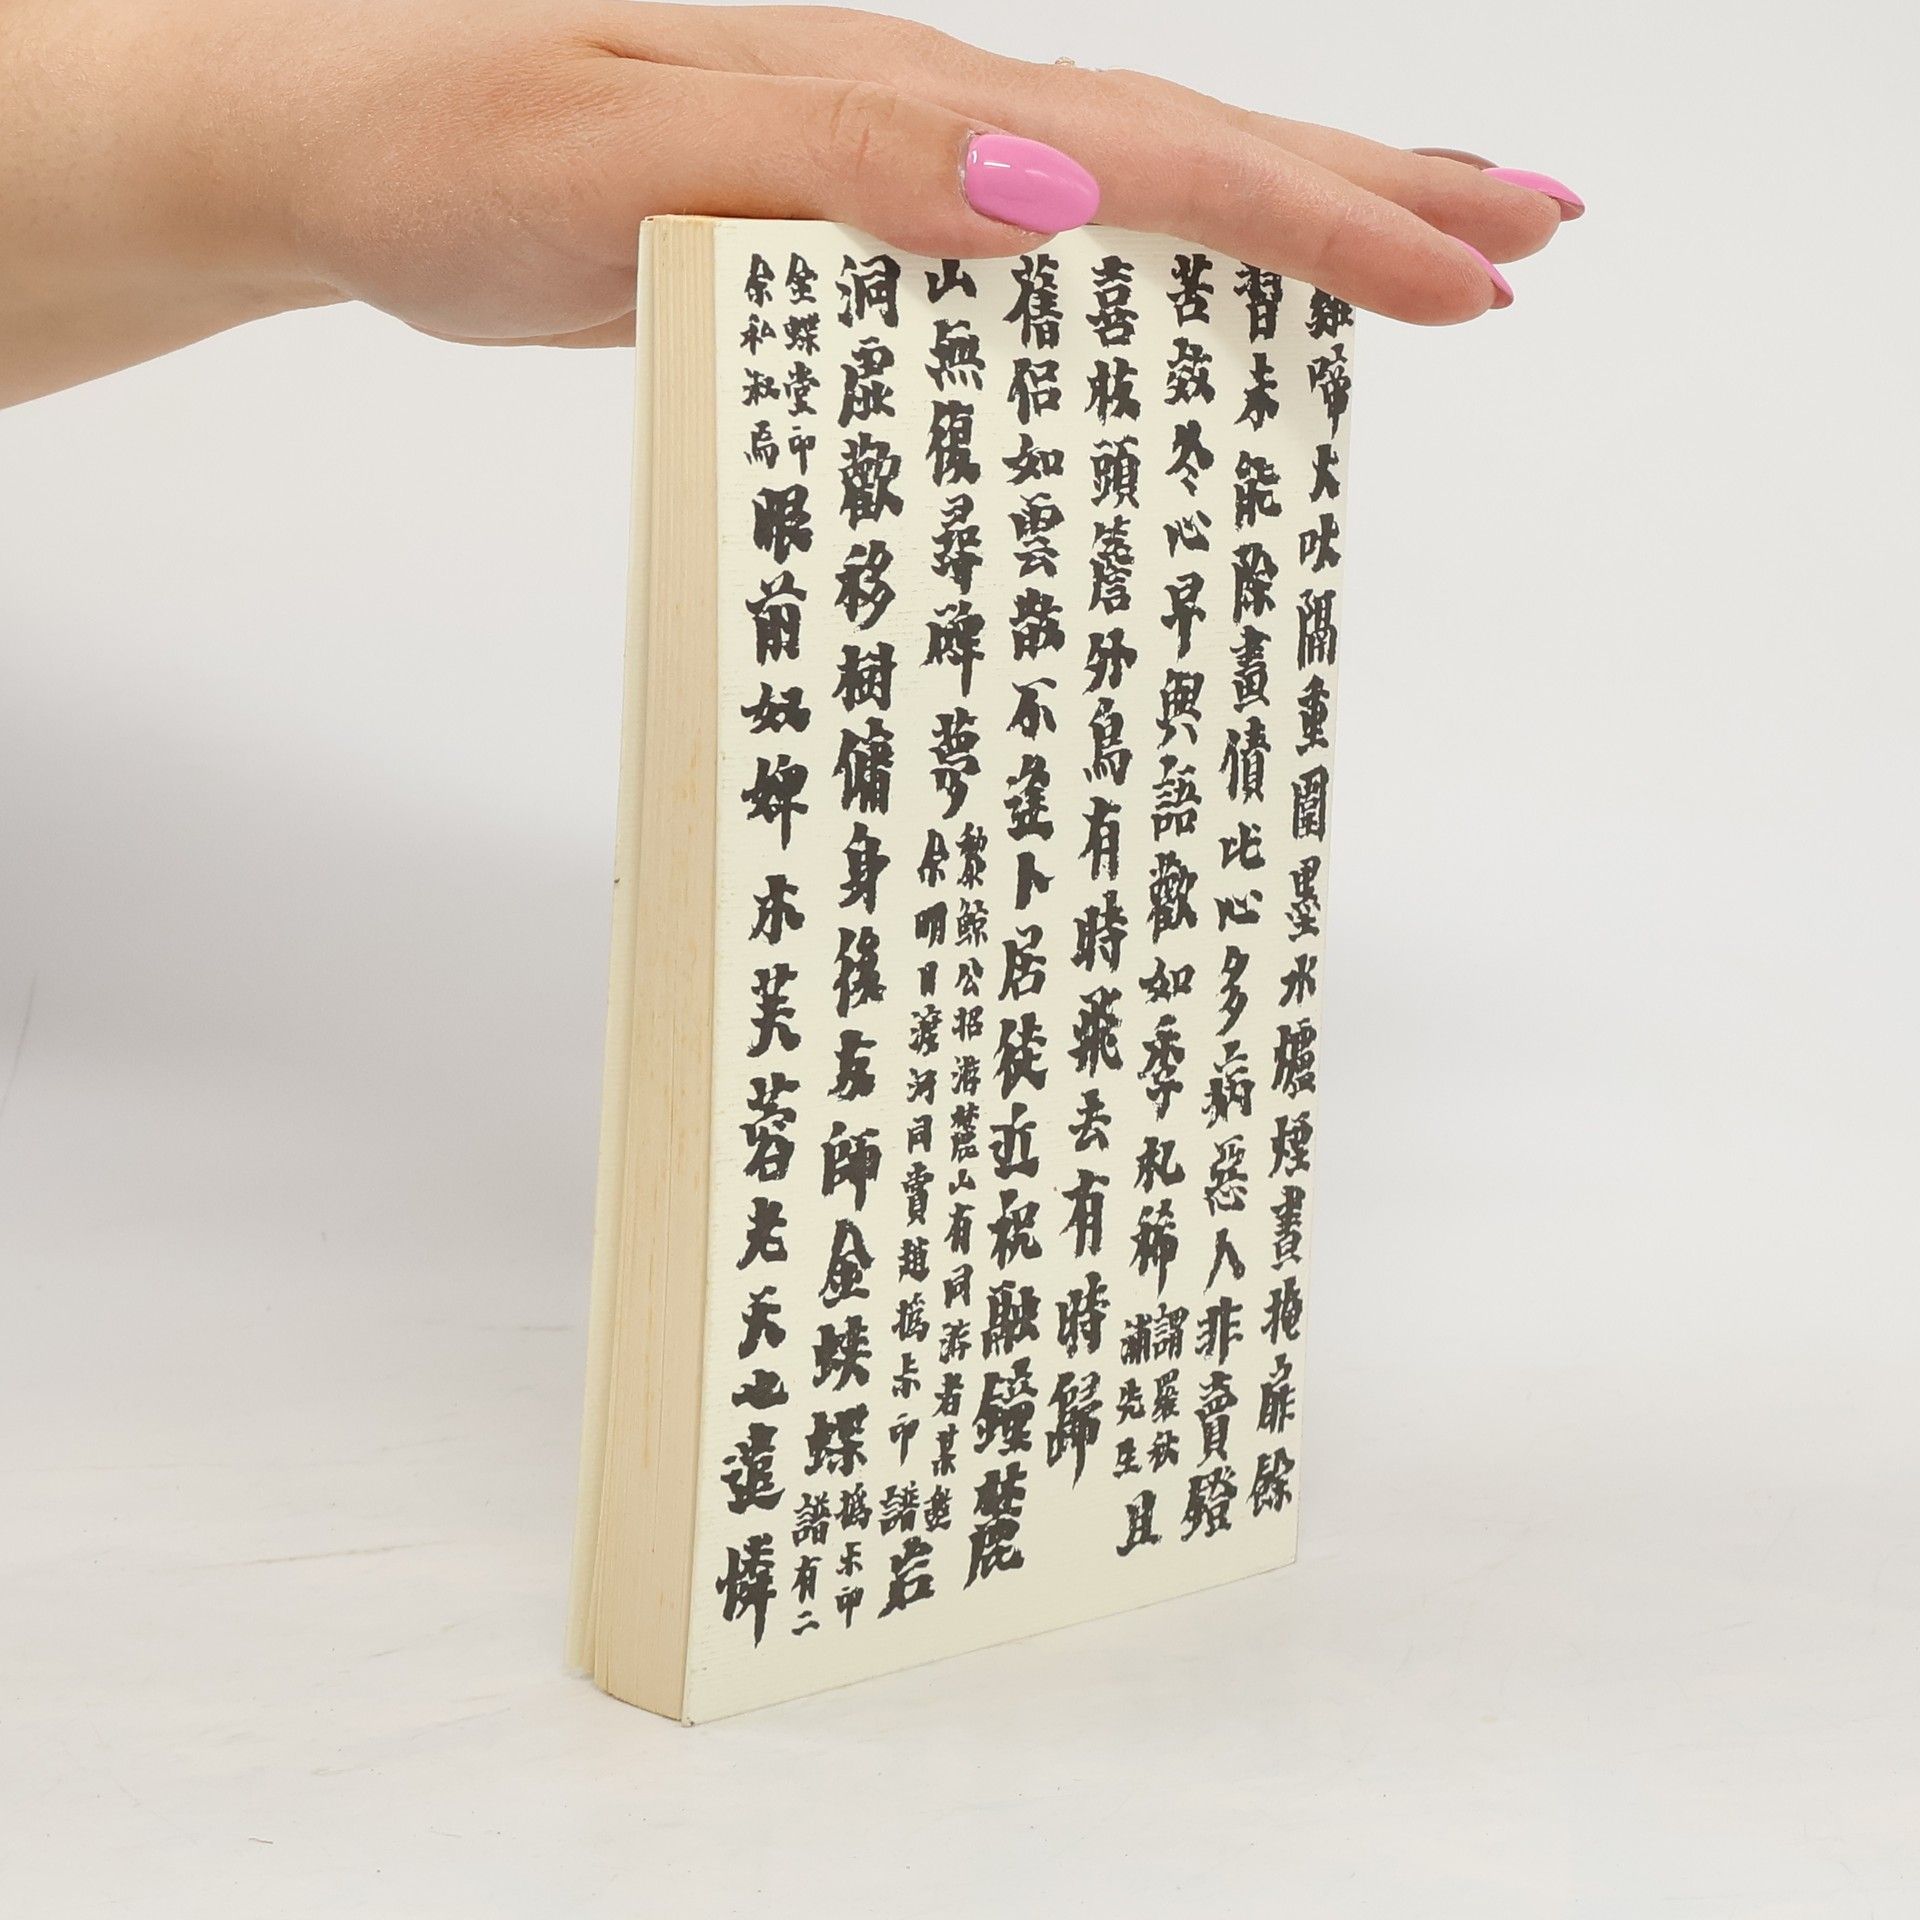 雞啼犬吠隔重圍墨水爐煙晝掩扉餘
習未能除畫債此心多病惡人非賣鐙
苦效冬心早與語歡如季札稀謂羅秋浦先生且
喜枝頭簷外鳥有時飛去有時歸
舊侶如雲散不逢卜居徒近祝融鐘麓
山無復尋碑夢黎鯨公招游麓山有同游者某邀余明日渡河同賣趙撝尗印譜岩
洞虛歡移樹傭身後友師金蛺蝶撝尗印譜有二
金蝶堂印余私淑焉眼前奴婢木芙蓉老天也遣憐